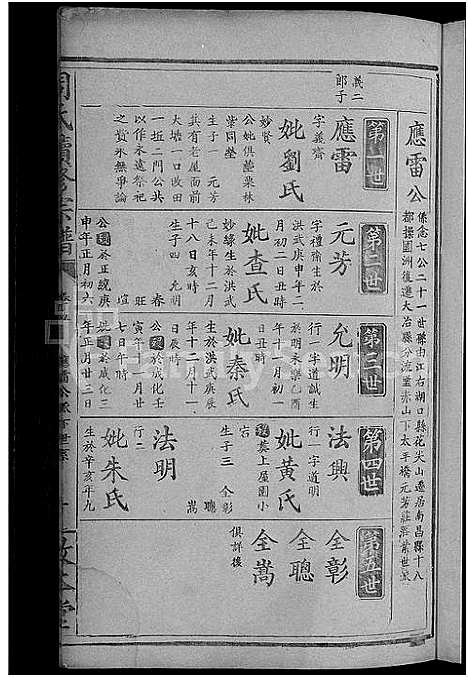 應雷公
係念七公二十一世縣由江右湖口縣花尖山遷居南昌縣十八
都操園洲復遷大冶縣分流靈赤山下太平橋元芳莊
第一世
義二
郎子
應雷
字義齋
妣劉氏
妙賢
公妣俱墾栗林
葉同塋
生子一 元芳
共有老屋面前
大塘一口收田
一坵二門公共
以作永遠祭祀
之貲永無爭論
第二世
元芳
字禮
生於
洪武庚申年二
月初二日丑時
妣查氏
妙緣生於洪武
己未年十二月
十八日亥時
生子四 允明
春
旺
瑄
公 於正統庚
申年正月初六
第三世
允明
行一字道誠生
於明永樂乙酉
年十一月初一
日辰時
妣秦氏
生於洪武庚辰
年十二月十一
公 於成化壬
寅年十一月廿
七日午時
妣 於成化三
年正月廿三日
第四世
法興
行一 字道明
妣黃氏
葬上屋園小
宕
生子三 全彰
聰
嵩
法明
行二
妣朱氏
生於辛亥年九
第五世
全彰
全聰
全嵩
俱詳後
周氏續修宗譜